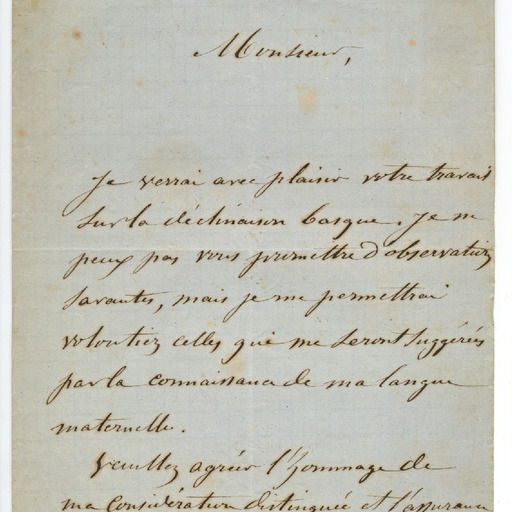 Monsieur,
Je verrai avec plaisir votre travail
sur la déclinaison basque. Je ne
peux pas vous promettre d'observations
savantes, mais je me permettrai
volontiez celles que me seront suggérées
par la connaissance de ma langue
maternelle.
Veuillez agréer l'hommage de
ma considération distinguée et l'assurance